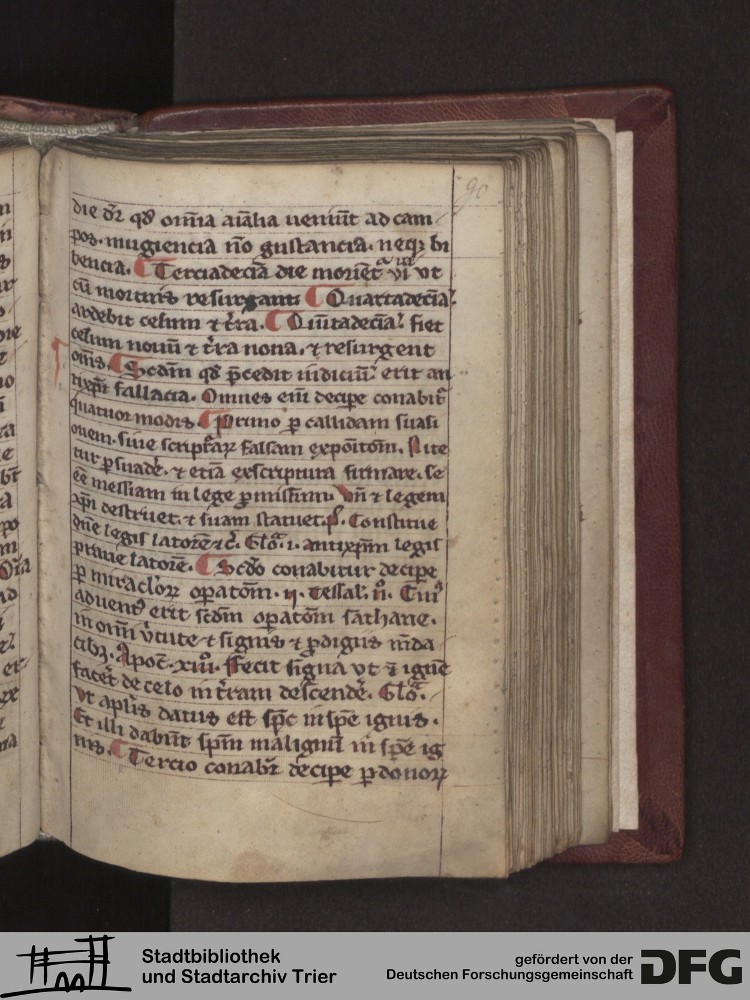 90
die dr̄ qd̄ om̄ia aīalia ueniūt ad cam
pos. mugiencia nō gustancia. neqꝫ bi
bencia. Terciadecīa die morient̄ viui vt
cū mortuis resurgant Quartadecīa.
ardebit celum ⁊ t̄ra. Quītadecīa. fiet
celum nouū ⁊ t̄ra noua. ⁊ resurgent
om̄s. Scd̄m qd̄ p̄cedit iudiciū. erit an
tixp̄i fallacia. Omnes eni decipe conabit̄
quatuor modis. Primo ꝑ callidam suasi
onem. siue scripturaꝝ falsam expōitōm.
tur ꝑsuadē. ⁊ etiā ex scriptura firmare. se
eē messiam in lege ꝓmissum. Vn̄ ⁊ legem
xp̄i destruet. ⁊ suam statuet. p̄s. Constitue
dn̄e legis latorē ⁊c̄. Glo. i. antixp̄m legis
praue latorē. Scd̄o conabitur decipe
ꝑ miraclorꝝ oꝑatōm. ij. Tessal. ij. Cuiꝰ
aduentꝰ erit scd̄m oꝑatōm sathane.
in om̄i v̄tute ⁊ signis ⁊ ꝓdigiis m̄da
cibꝫ. Apoc̄. xiii. Fecit signa vt ⁊ ignē
facet̄ de celo in t̄ram descendē. Glo.
Vt aplīs datus est sp̄c in sp̄e ignis.
Et illi dabūt sp̄m malignū in sp̄e ig
nis. Tercio conabit̄ decipe ꝑ donorꝝ
Stadtbibliothek
und Stadtarchiv Trier
gefördert von der
Deutschen Forschungsgemeinschaft
DFG